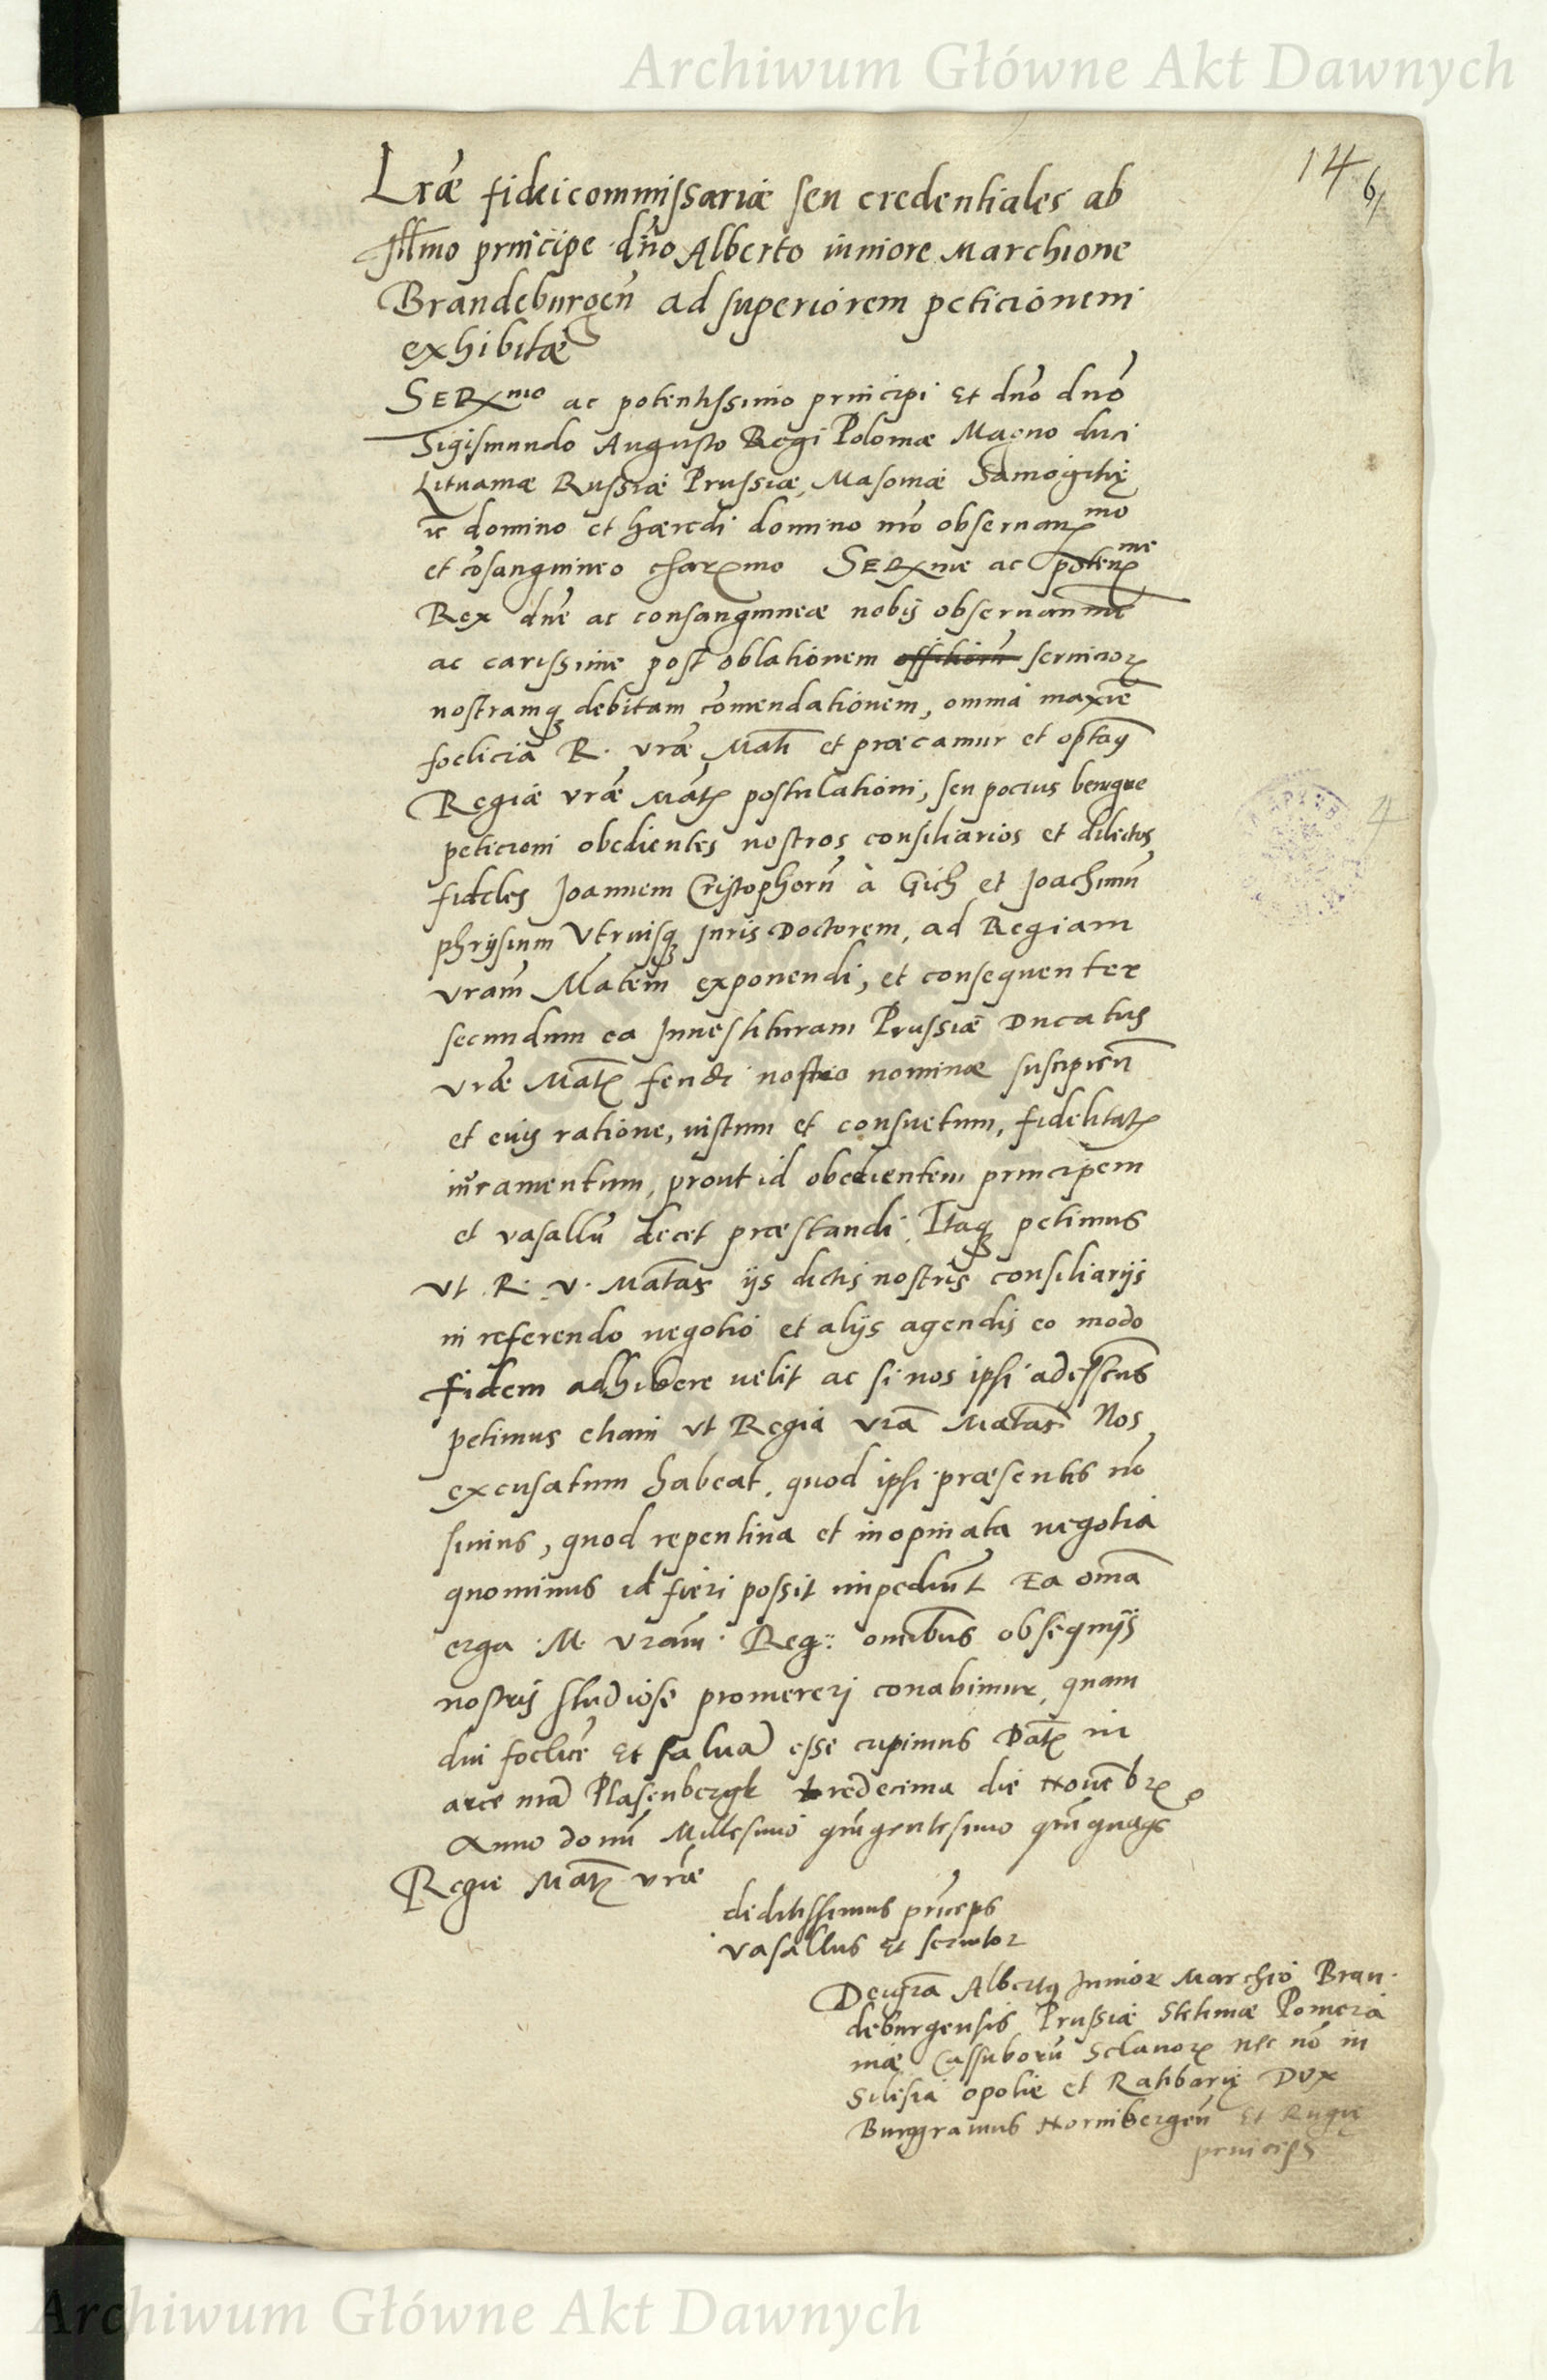 Archiwum Główne Akt Dawnych
14
6
Lrãe fideicommissariæ seu credentiales ab
Illmo principe dño Alberto iuniore Marchione
Brandeburgeñ ad superiorem peticionem
exhibitæ
SERmo ac potentissimo principi Et dño dño
Sigismundo Augusto Regi Poloniæ Magno duci
Lituaniæ Russiæ Prussiæ, Masouiæ Samogitię
ec domino et hæredi domino nrõ obseruanmo
et cõsanguineo charmo SERme ac potenme
Rex dñe ac consanguineæ nobis obseruanme
ac carissime post oblationem offitiorũ seruicioR
nostramq debitam cõmendationem, omnia maxiẽ
foelicia R. vrãe Mati et præcamur et optaq
Regiæ vrãe Matis postulationi, seu pocius benigne
peticioni obedientes nostros consiliarios et dilectos
fideles Joannem Cristophorũ à Gich et Joachimũ
phrijsium Vtriusq Juris Doctorem, ad Regiam
vram̃ Matem exponendi, et consequenter
secundum ea Inuestituram Prussiæ Ducatus
vrãe Matis feudi nostro nominæ suscipieñ
et eius ratione, iustum et consuetum, fidelitatis
iuramentum, prout id obedientem principem
et vasallũ decet præstandi. Itaq petimus
vt R. v. Matas ijs dictis nostris consiliarijs
in referendo negotio et alijs agendis eo modo
fidem adhibere uelit ac si nos ipsi adessems
petimus etiam vt Regia vrã Matas Nos
excusatum habeat, quod ipsi præsentes nõ
simus, quod repentina et inopinata negotia
quominus id fieri possit impediũt Ea omã
erga .M. vram̃. Reg: omibus obsequijs
nostris studiose promererj conabimur, quam
diu foelicẽ Et saluã esse cupimus Datis in
arce nrã Plasenbergk tredecima die Nouẽbrs
Anno domĩ Millesimo quĩgentesimo quĩquages
Regie Matis vrãe
deditissimus prĩceps
vasallus Et seruitor
Dei grã Albertq Junior Marchio Bran-
deburgensis Prussiæ Stetinæ Pomera
niæ Cassuborũ SclauoR nec nõ in
Silesia opolie et Ratiborię Dvx
Burggrauius Nornibergeñ Et Rugię
princips
Archiwum Główne Akt Dawnych